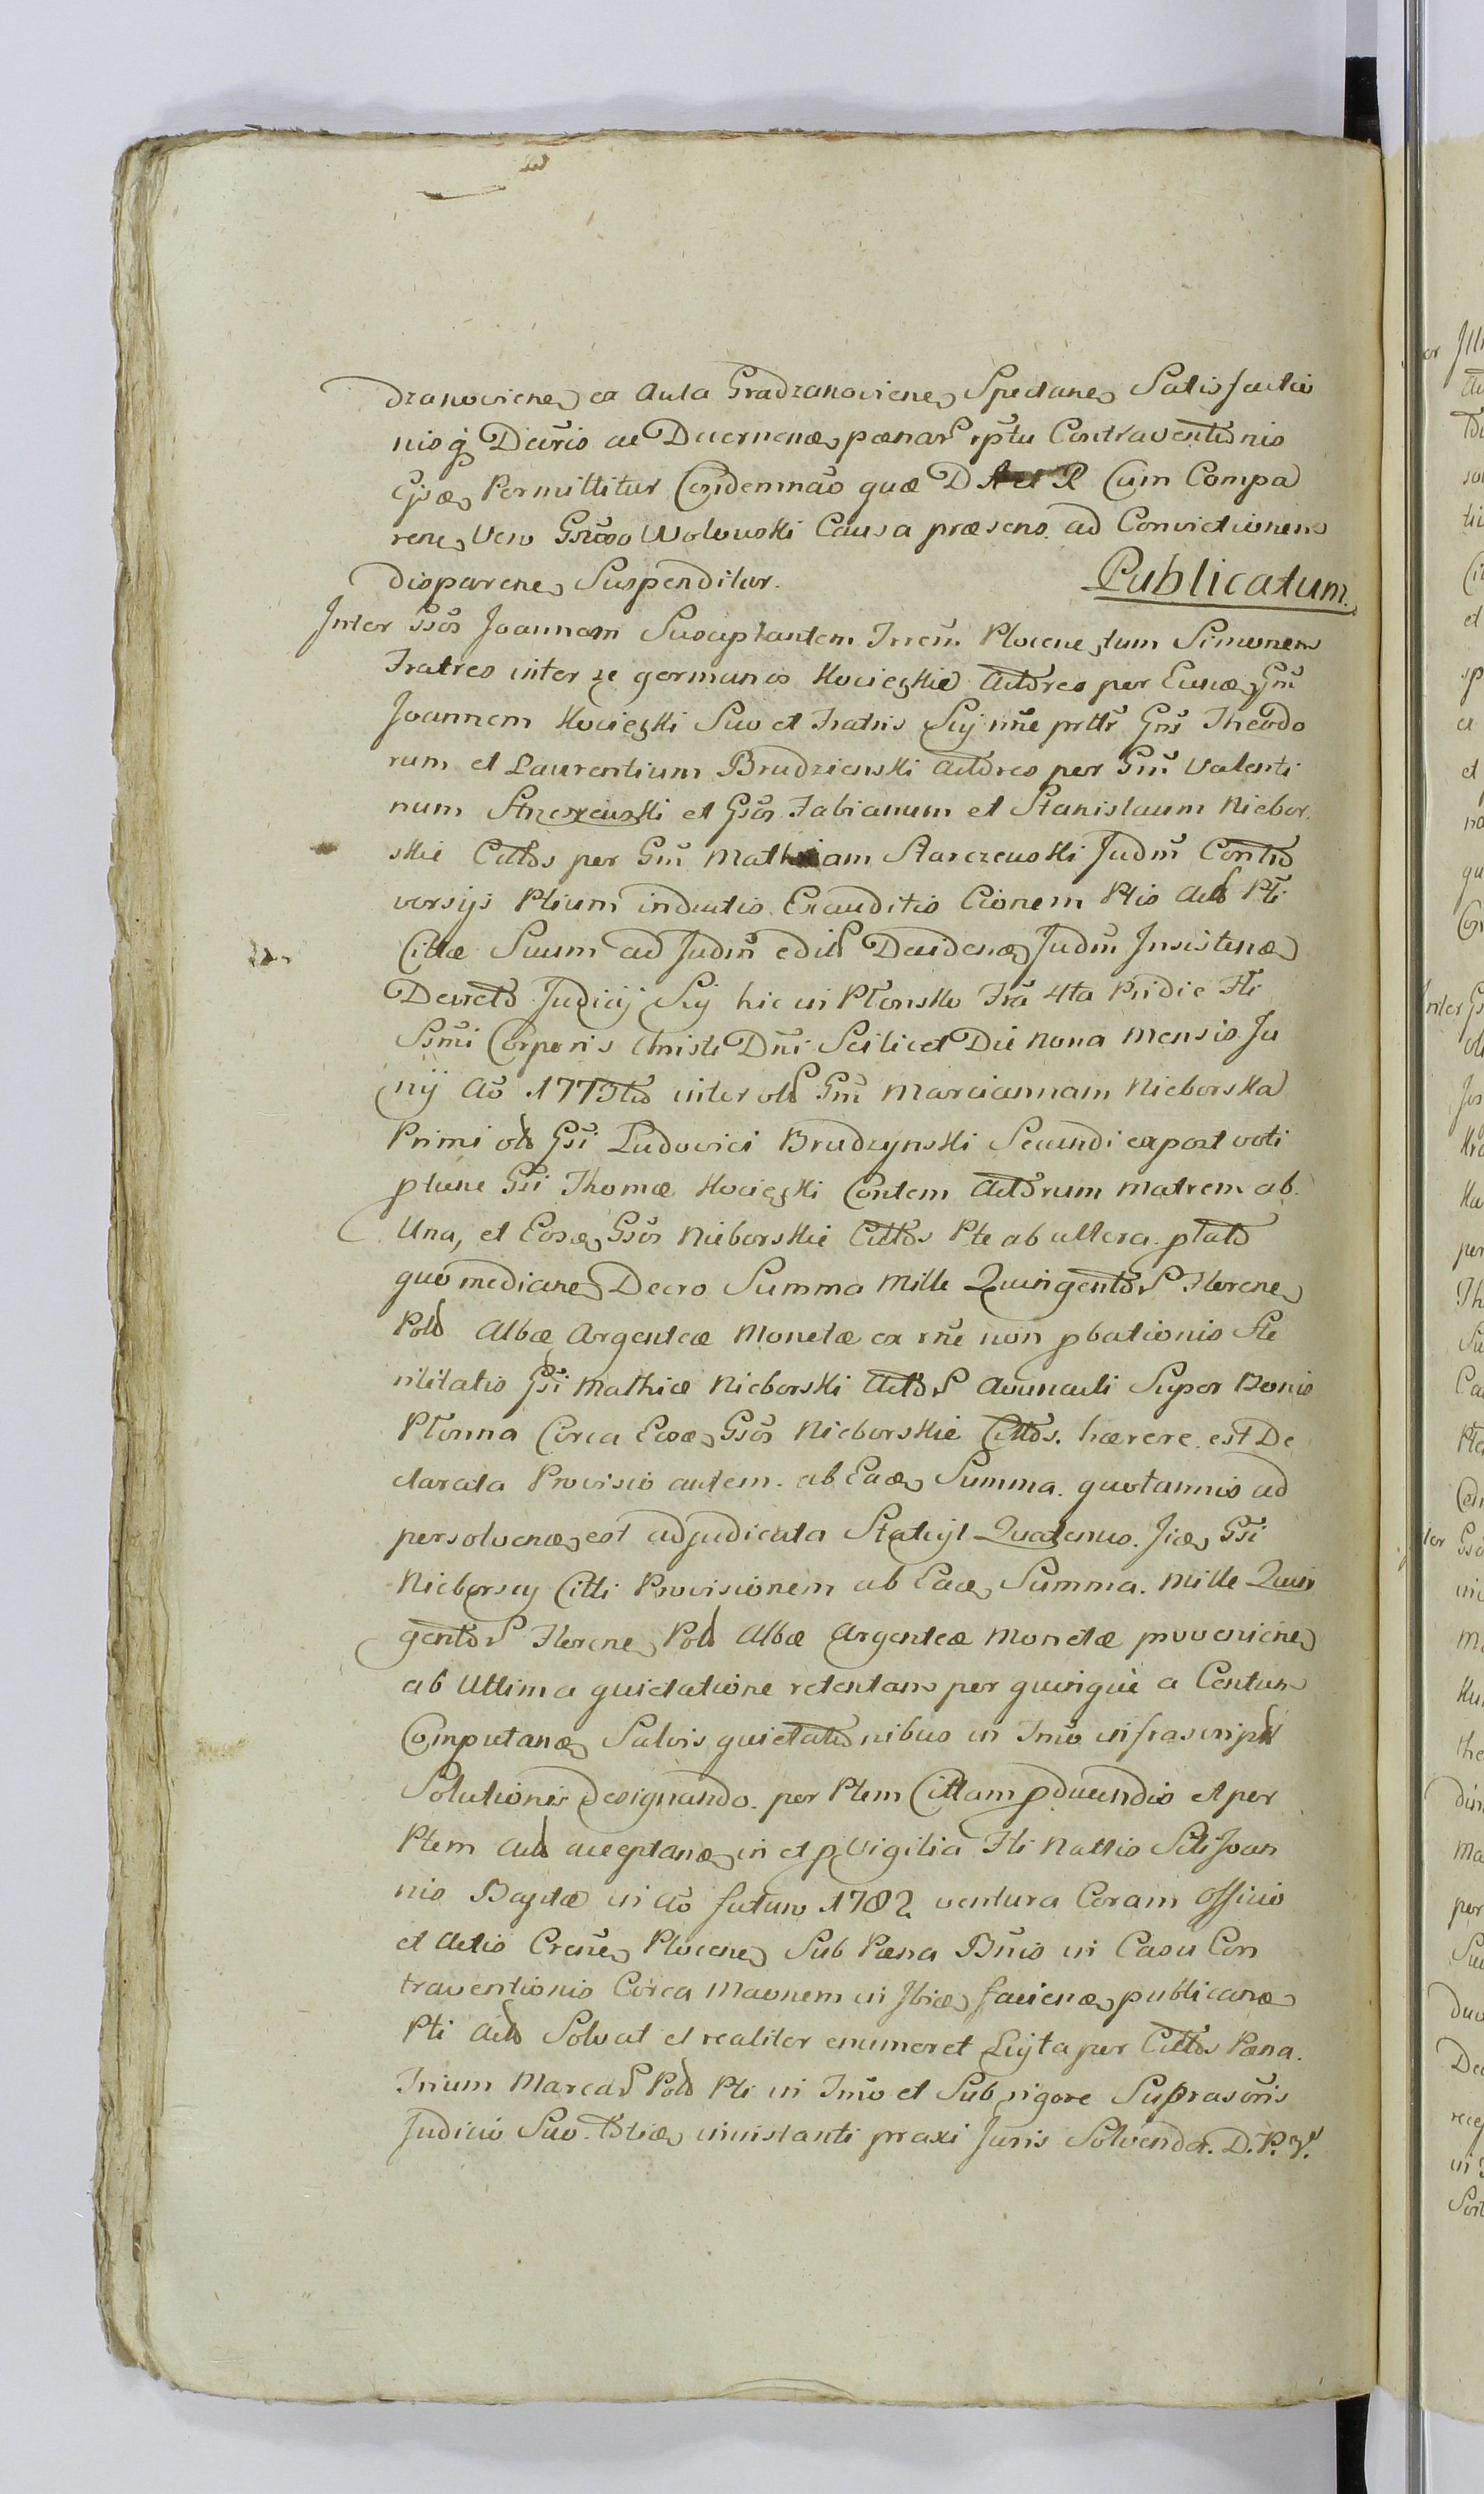 dzanoviens ex Aula Gradzanoviens Spectans Satisfactio
nis q Decris ac Decernend pœnar rptu Contraventionis
Ejsd Permittitur Condemnao quæ D R Cum Compa
rens Vero Gsi Wolowski Causa præsens ad Convictionem
disparens Suspenditur. Publicatum.
Inter Gsos Joannem Susceptantem Trrem Plocens tum Simonem
Fratres inter se germanos Kocięskie Actores per Eund Gm
Joannem Kocięski Suo et Fratris Sui nne prttr Gns Theodo
rum et Laurentium Brudzienski Actores per Gm Valenti
num et Gsos Fabianum et Stanislaum Niebor
skie Cittos per Gm Mathiam Starczewski Judm Contro
versijs Ptium inductis Exauditis Cionem Ptis Act Pti
Cittæ Suum ad Judm edit Deciden Judm Insistend
Decreto Judicij Sui hic in Płonsko Fra 4ta Pridie Fti
Ssmi Corporis Christi Dni Scilicet Die nona Mensis Ju
nij Ao 1773tio inter ol Gm Mariannam Nieborska
Primi ol Gsi Ludovici Brudzynski Secundi expost voti
ptunc Gsi Thomæ Kocięski Contem Actorum Matrem ab
Una, et Eosd Gsos Nieborskie Cittos Pte ab altera plato
quo medians Decro Summa Mille Quingentor Florens
Pol Albæ Argenteæ Monetæ ex rne non pbationis Ste
rilitatis Gsi Mathiæ Nieborski Actor Avunculi Super Bonis
Płonna Circa Eosd Gsos Nieborskie Cittos. hærere est De
clarata Provisio autem ab Ead Summa quotannis ad
persolvend est adjudicata Statuit Quatenus Jid Gsi
Nieborscy Citti Provisionem ab Ead Summa Mille Quin
gentor Florens Pol Albæ Argenteæ Monetæ proveniens
ab Ultima quietatione retentam per quinque a Centum
Computand Salvis quietationibus in Tmo infrascript
Solutionis designando per Ptem Cittam pducendis et per
Ptem Act acceptand in et p Vigilia Fti Nattis Scti Joan
nis Baptæ in Ao futuro 1782 ventura Coram Officio
et Actis Crens Plocens Sub Pæna Bnis in Casu Con
traventionis Circa Maonem in Ibid faciend publicand
Pti Act Solvat et realiter enumeret Luita per Cittos Pæna
Trium Marcar Pol Pti in Tmo et Sub rigore Suprasoris
Judicio Suo Btiæ inistanti praxi Juris Solvenda. D.P.V.